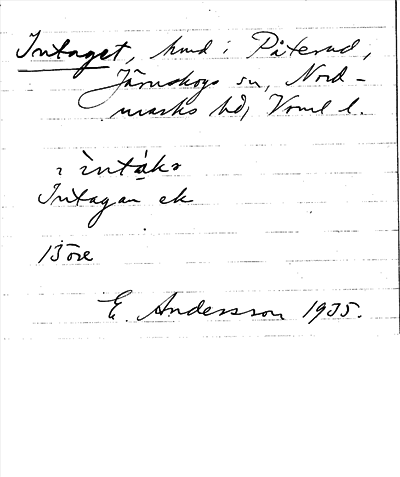 Intaget, hmd i Påterud,
Järnskogs sn, Nord-
marks hd, Vrml l.
ı ìntákə
Intagan ek
Böre
E. Andersson 1935.